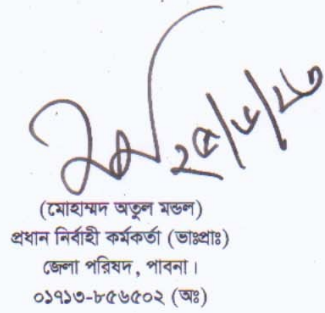 ২৫/৬/২৩
(মোহাম্মদ অতুল মন্ডল)
প্রধান নির্বাহী কর্মকর্তা (ভাঃপ্রাঃ)
জেলা পরিষদ, পাবনা।
০১৭১৩-৮৫৬৫০২ (অঃ)